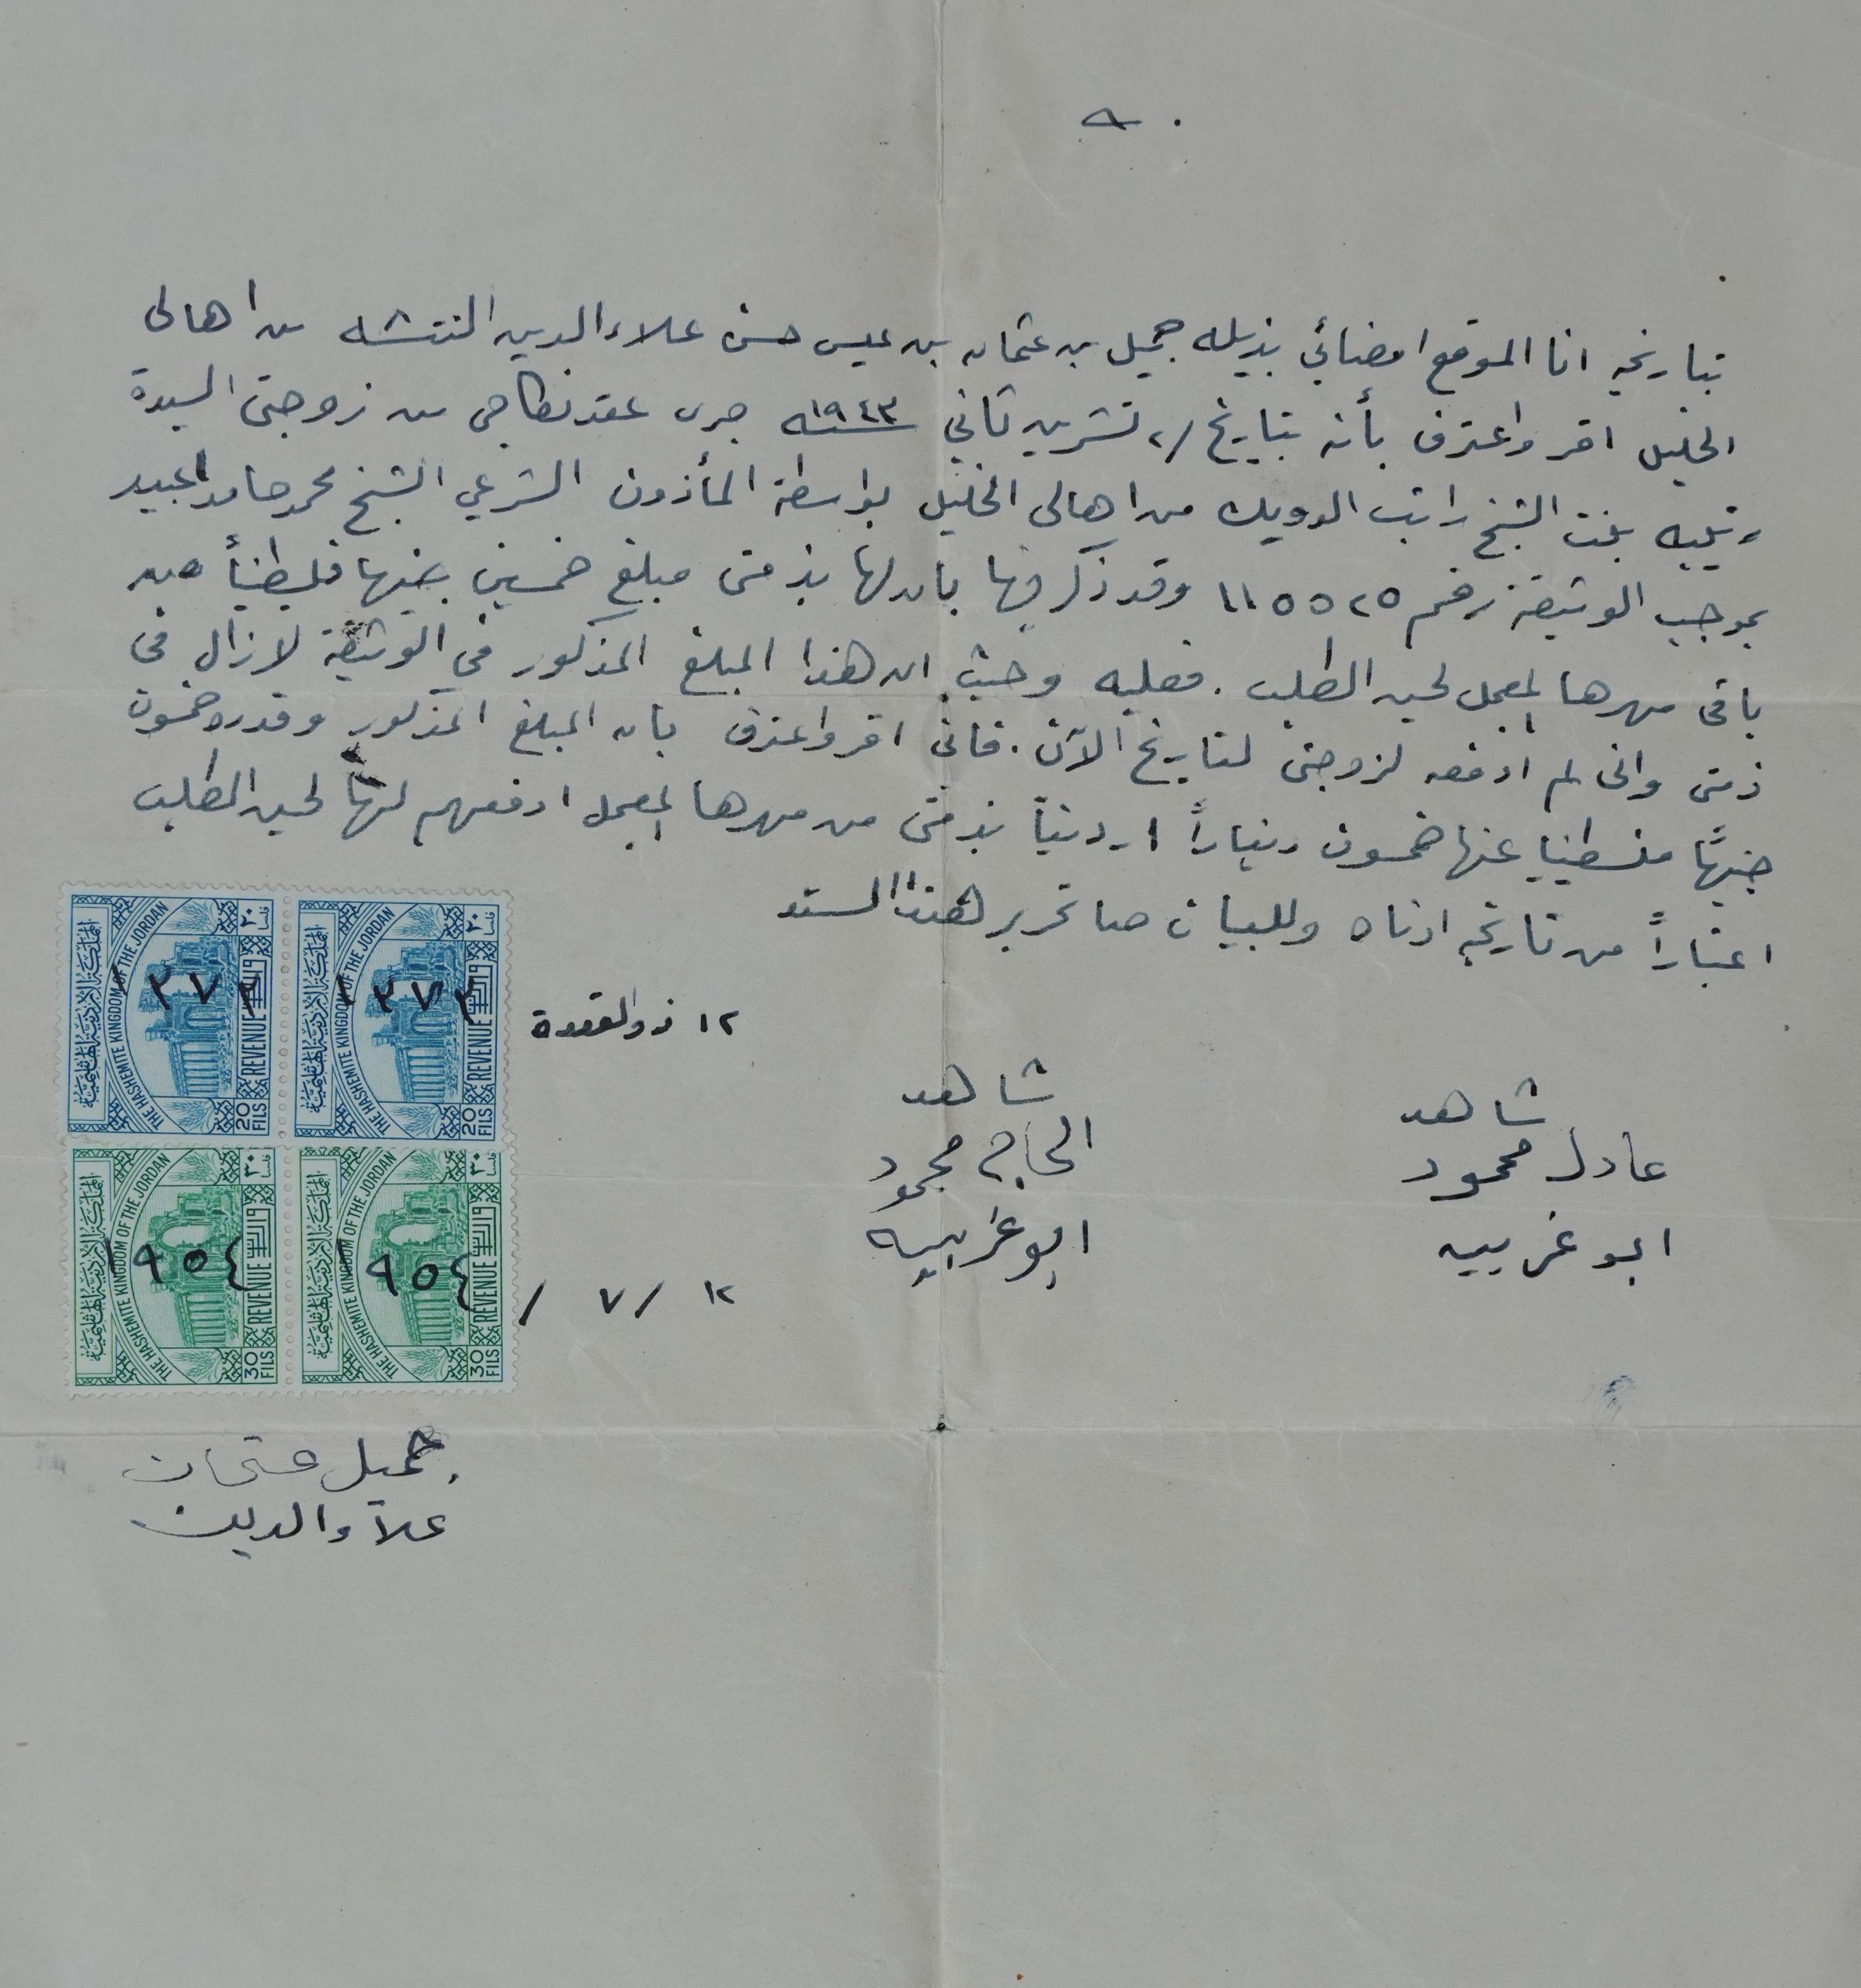 بتاريخه انا الموقع امضائي بذيله جميل بن عثمان بن عيسى حسن علاء الدين النتشه من اهالي
الخليل اقر واعترف بأنه بتاريخ ٢/ تشرين ثاني سنة ١٩٤٣ جرى عقد نكاحي من زوجتي السيدة
بنت الشيخ راتب الدويك من اهالي الخليل بواسطة المأذون الشرعي الشيخ محمد حامد
بموجب الوثيقة رقم ١١٥٥٢٥ وقد ذكر فيها بان لها بذمتي مبلغ خمسين جنيها فلسطينياً من
باقي مهرها المعجل لحين الطلب . فعليه وحيث ان هذا المبلغ المذكور في الوثيقة لازال في
ذمتي واني لم ادفعه لزوجتي لتاريخ الآن . فاني اقر واعترف بان المبلغ المذكور وقدره خمسون
جنيهًا فلسطينيا عنها خمسون ديناراً اردنياً بذمتي من مهرها المعجل ادفعهم لها لحين الطلب
اعتباراً من تاريخه ادناه وللبيان صا تحرير هذا السند
١٢ ذو القعدة ١٣٧٣ ١٣٧٣
شاهد
عادل محمود
ابو غربيه
شاهد
الحاج محمود
ابو غربيه
١٢ / ٧ / ١٩٥٤ ١٩٥٤
المملكة الأردنية الهاشمية
THE HASHEMITE KINGDOM OF THE JORDAN
REVENUE
٢٠ فلسا
20 FILS
المملكة الأردنية الهاشمية
THE HASHEMITE KINGDOM OF THE JORDAN
REVENUE
٢٠ فلسا
20 FILS
المملكة الأردنية الهاشمية
THE HASHEMITE KINGDOM OF THE JORDAN
REVENUE
٣٠ فلسا
30 FILS
المملكة الأردنية الهاشمية
THE HASHEMITE KINGDOM OF THE JORDAN
REVENUE
٣٠ فلسا
30 FILS
جميل عثمان
علاء الدين